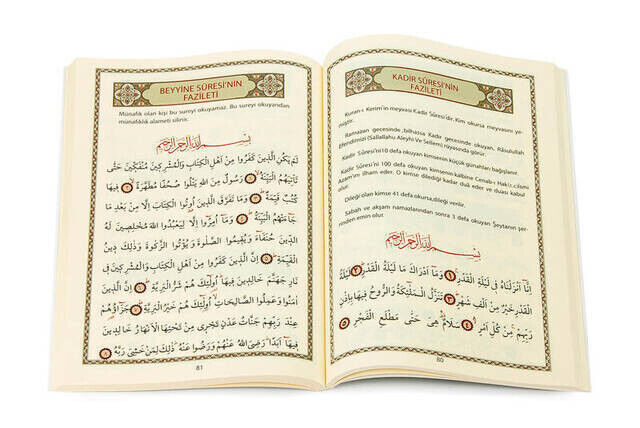 KADİR SÛRESİ'NİN
FAZİLETİ
Kuran-ı Kerim'in meyvası Kadir Sûresi'dir. Kim okursa meyvasını ye-
miştir.
Ramazan gecesinde ,bilhassa Kadir gecesinde okuyan, Râsulullah
Efendimizi (Sallallahu Aleyhi Ve Sellem) rüyasında görür.
Kadir Sûresi'ni10 defa okuyan kimsenin küçük günahları bağışlanır.
Kadir Sûresi'ni 100 defa okuyan kimsenin kalbine Cenab-ı Hak İsm-i
Azam'ını ilham eder. O kimse dilediği kadar dua eder ve duası kabul
olur.
Dileği olan kimse 41 defa okursa,dileği verilir.
Sabah ve akşam namazlarından sonra 3 defa okuyan Şeytanın şer-
rinden emin olur.
بِسْمِ اللّٰهِ الرَّحْمٰنِ الرَّحِيمِ
اِنَّٓا اَنْزَلْنَاهُ فِي لَيْلَةِ الْقَدْرِ ﴿١﴾ وَمَٓا اَدْرٰيكَ مَا لَيْلَةُ الْقَدْرِ ﴿٢﴾ لَيْلَةُ
الْقَدْرِ خَيْرٌ مِنْ اَلْفِ شَهْرٍ ﴿٣﴾ تَنَزَّلُ الْمَلٰٓئِكَةُ وَالرُّوحُ فِيهَا بِاِذْنِ
رَبِّهِمْ مِنْ كُلِّ اَمْرٍ ﴿٤﴾ سَلَامٌ هِيَ حَتّٰى مَطْلَعِ الْفَجْرِ ﴿٥﴾
80
BEYYİNE SÛRESİ'NİN
FAZİLETİ
Münafık olan kişi bu sureyi okuyamaz. Bu sureyi okuyandan
münafıklık alameti silinir.
بِسْمِ اللّٰهِ الرَّحْمٰنِ الرَّحِيمِ
لَمْ يَكُنِ الَّذِينَ كَفَرُوا مِنْ اَهْلِ الْكِتَابِ وَالْمُشْرِكِينَ مُنْفَكِّينَ حَتّٰى
تَاْتِيَهُمُ الْبَيِّنَةُ ﴿١﴾ رَسُولٌ مِنَ اللّٰهِ يَتْلُوا صُحُفًا مُطَهَّرَةً ﴿٢﴾ فِيهَا
كُتُبٌ قَيِّمَةٌ ﴿٣﴾ وَمَا تَفَرَّقَ الَّذِينَ اُوتُوا الْكِتَابَ اِلَّا مِنْ بَعْدِ مَا
جَٓاءَتْهُمُ الْبَيِّنَةُ ﴿٤﴾ وَمَٓا اُمِرُٓوا اِلَّا لِيَعْبُدُوا اللّٰهَ مُخْلِصِينَ لَهُ
الدِّينَ حُنَفَٓاءَ وَيُقِيمُوا الصَّلٰوةَ وَيُؤْتُوا الزَّكٰوةَ وَذٰلِكَ دِينُ
الْقَيِّمَةِ ﴿٥﴾ اِنَّ الَّذِينَ كَفَرُوا مِنْ اَهْلِ الْكِتَابِ وَالْمُشْرِكِينَ فِي
نَارِ جَهَنَّمَ خَالِدِينَ فِيهَا اُولٰٓئِكَ هُمْ شَرُّ الْبَرِيَّةِ ﴿٦﴾ اِنَّ الَّذِينَ
اٰمَنُوا وَعَمِلُوا الصَّالِحَاتِ اُولٰٓئِكَ هُمْ خَيْرُ الْبَرِيَّةِ ﴿٧﴾ جَزَٓاؤُهُمْ
عِنْدَ رَبِّهِمْ جَنَّاتُ عَدْنٍ تَجْرِي مِنْ تَحْتِهَا الْاَنْهَارُ خَالِدِينَ
فِيهَٓا اَبَدًا رَضِيَ اللّٰهُ عَنْهُمْ وَرَضُوا عَنْهُ ذٰلِكَ لِمَنْ خَشِيَ رَبَّهُ ﴿٨﴾
81